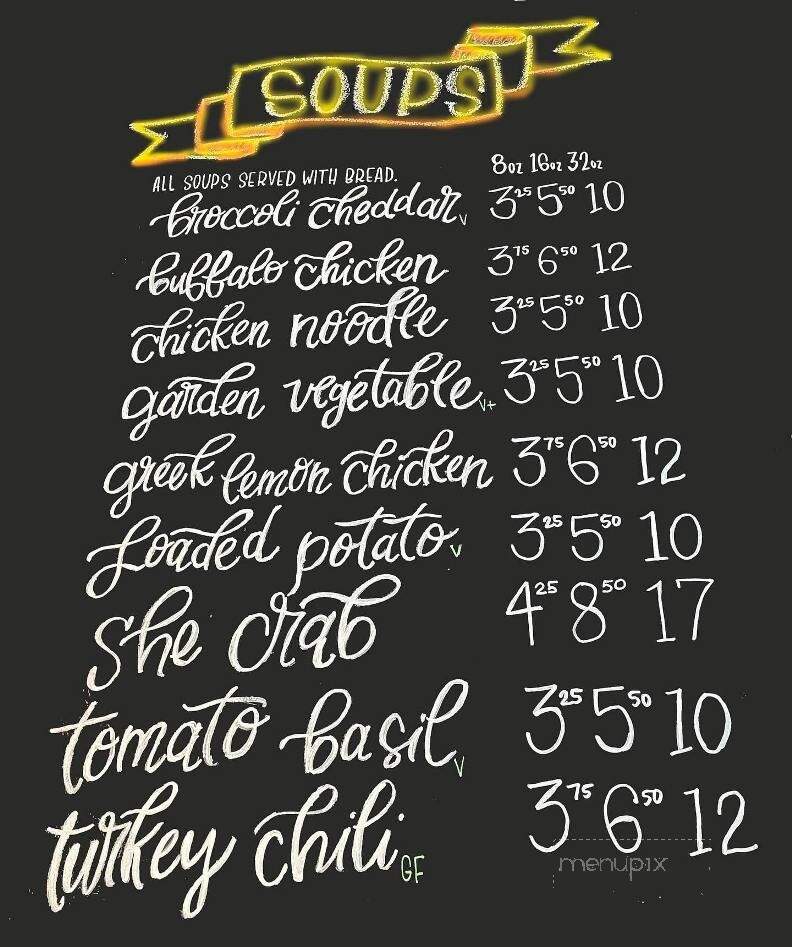 SOUPS
8oz 16oz 32oz
ALL SOUPS SERVED WITH BREAD.
broccoli cheddar v 3 25 5 50 10
buffalo chicken 3 75 6 50 12
chicken noodle 3 25 5 50 10
garden vegetable v+ 3 25 5 50 10
greek lemon chicken 3 75 6 50 12
Loaded potato v 3 25 5 50 10
She crab 4 25 8 50 17
tomato basil v 3 25 5 50 10
turkey chili GF 3 75 6 50 12
menupix